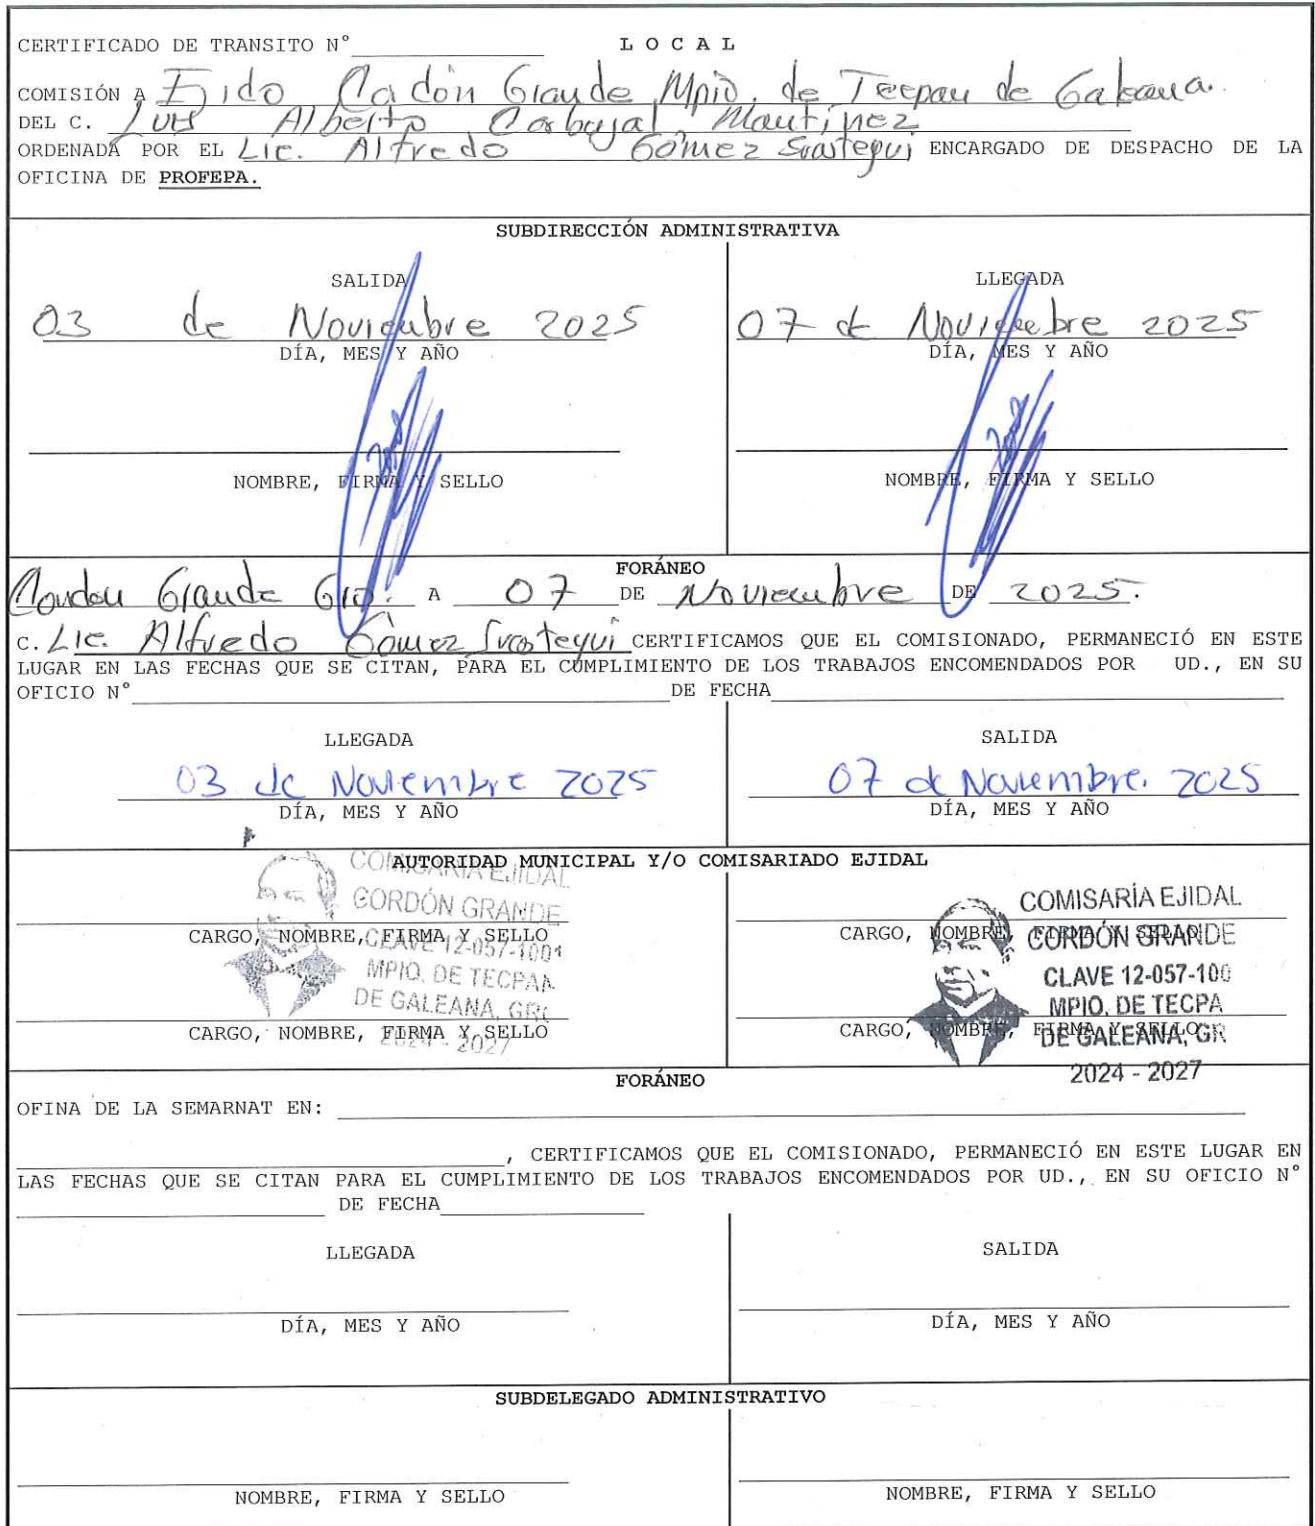 CERTIFICADO DE TRANSITO N° LOCAL
COMISIÓN A Ejido Cordón Grande Mpio. de Tecpan de Galeana.
DEL C. Luis Alberto Carbajal Martínez
ORDENADA POR EL Lic. Alfredo Gómez Suastegui ENCARGADO DE DESPACHO DE LA
OFICINA DE PROFEPA.
SUBDIRECCIÓN ADMINISTRATIVA
SALIDA
03 de Noviembre 2025
DÍA, MES Y AÑO
NOMBRE, FIRMA Y SELLO
LLEGADA
07 de Noviembre 2025
DÍA, MES Y AÑO
NOMBRE, FIRMA Y SELLO
FORÁNEO
Cordon Grande Gro. A 07 DE Noviembre DE 2025.
C. Lic. Alfredo Gómez Suastegui CERTIFICAMOS QUE EL COMISIONADO, PERMANECIÓ EN ESTE
LUGAR EN LAS FECHAS QUE SE CITAN, PARA EL CUMPLIMIENTO DE LOS TRABAJOS ENCOMENDADOS POR UD., EN SU
OFICIO N° DE FECHA
LLEGADA
03 de Noviembre 2025
DÍA, MES Y AÑO
SALIDA
07 de Noviembre. 2025
DÍA, MES Y AÑO
AUTORIDAD MUNICIPAL Y/O COMISARIADO EJIDAL
CARGO, NOMBRE, FIRMA Y SELLO
CARGO, NOMBRE, FIRMA Y SELLO
COMISARIA EJIDAL
CORDÓN GRANDE
CLAVE 12-057-1001
MPIO. DE TECPAN
DE GALEANA, GR
2024 - 2027
CARGO, NOMBRE, FIRMA Y SELLO
CARGO, NOMBRE, FIRMA Y SELLO
COMISARÍA EJIDAL
CORDÓN GRANDE
CLAVE 12-057-100
MPIO. DE TECPA
DE GALEANA, GR
2024 - 2027
FORÁNEO
OFINA DE LA SEMARNAT EN:
, CERTIFICAMOS QUE EL COMISIONADO, PERMANECIÓ EN ESTE LUGAR EN
LAS FECHAS QUE SE CITAN PARA EL CUMPLIMIENTO DE LOS TRABAJOS ENCOMENDADOS POR UD., EN SU OFICIO N°
DE FECHA
LLEGADA
DÍA, MES Y AÑO
SALIDA
DÍA, MES Y AÑO
SUBDELEGADO ADMINISTRATIVO
NOMBRE, FIRMA Y SELLO
NOMBRE, FIRMA Y SELLO